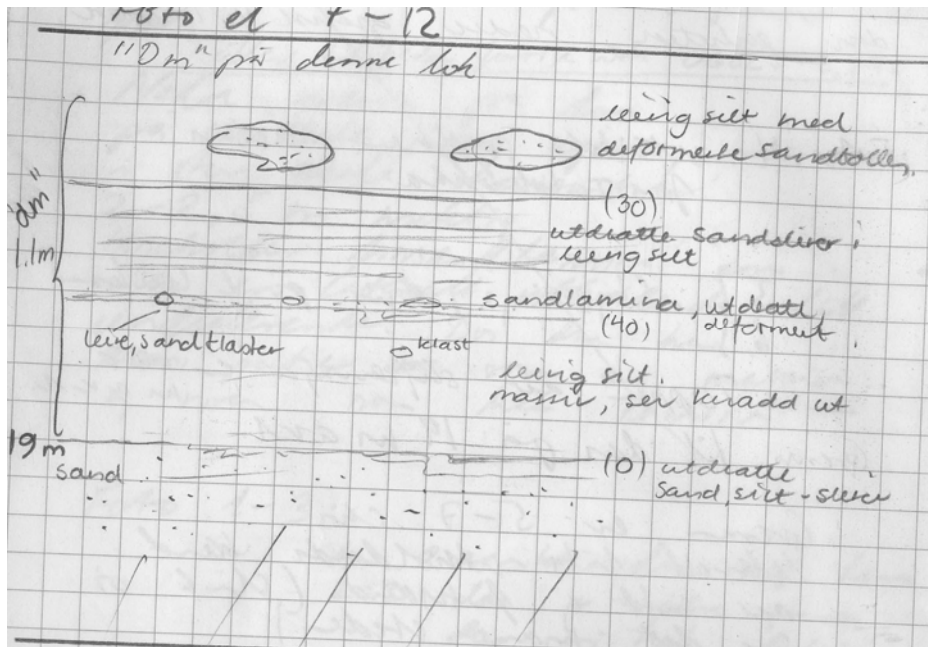 Foto el 7-12
"0m" på denne lok
leirig silt med
deformerte sandboller.
(30)
utdratte sandslirer i
leirig silt
"dm"
1.1m
sandlamina, utdratt,
(40) deformert.
leire, sandklaster
klast
leirig silt.
massiv, ser knadd ut
19m
sand
(0) utdratte
sand, silt-slirer